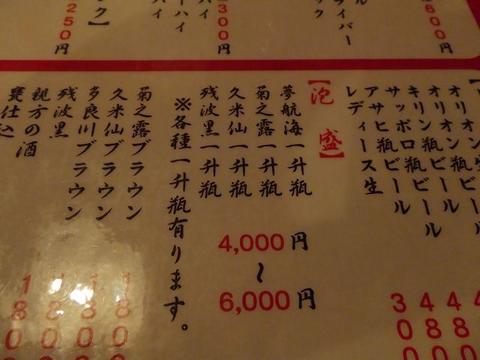 600円
ライバー
ック
300円
ーハイ
バイ
ク】
250円
オリオン瓶ビール
キリン瓶ビール
サッポロ瓶ビール
アサヒ瓶ビール
レディース生
【泡盛】
夢航海一升瓶
菊之露一升瓶
久米仙一升瓶
残波黒一升瓶
4,000円
〜
6,000円
※各種一升瓶有ります。
菊之露ブラウン
久米仙ブラウン
多良川ブラウン
残波黒
親方の酒
甕仕込